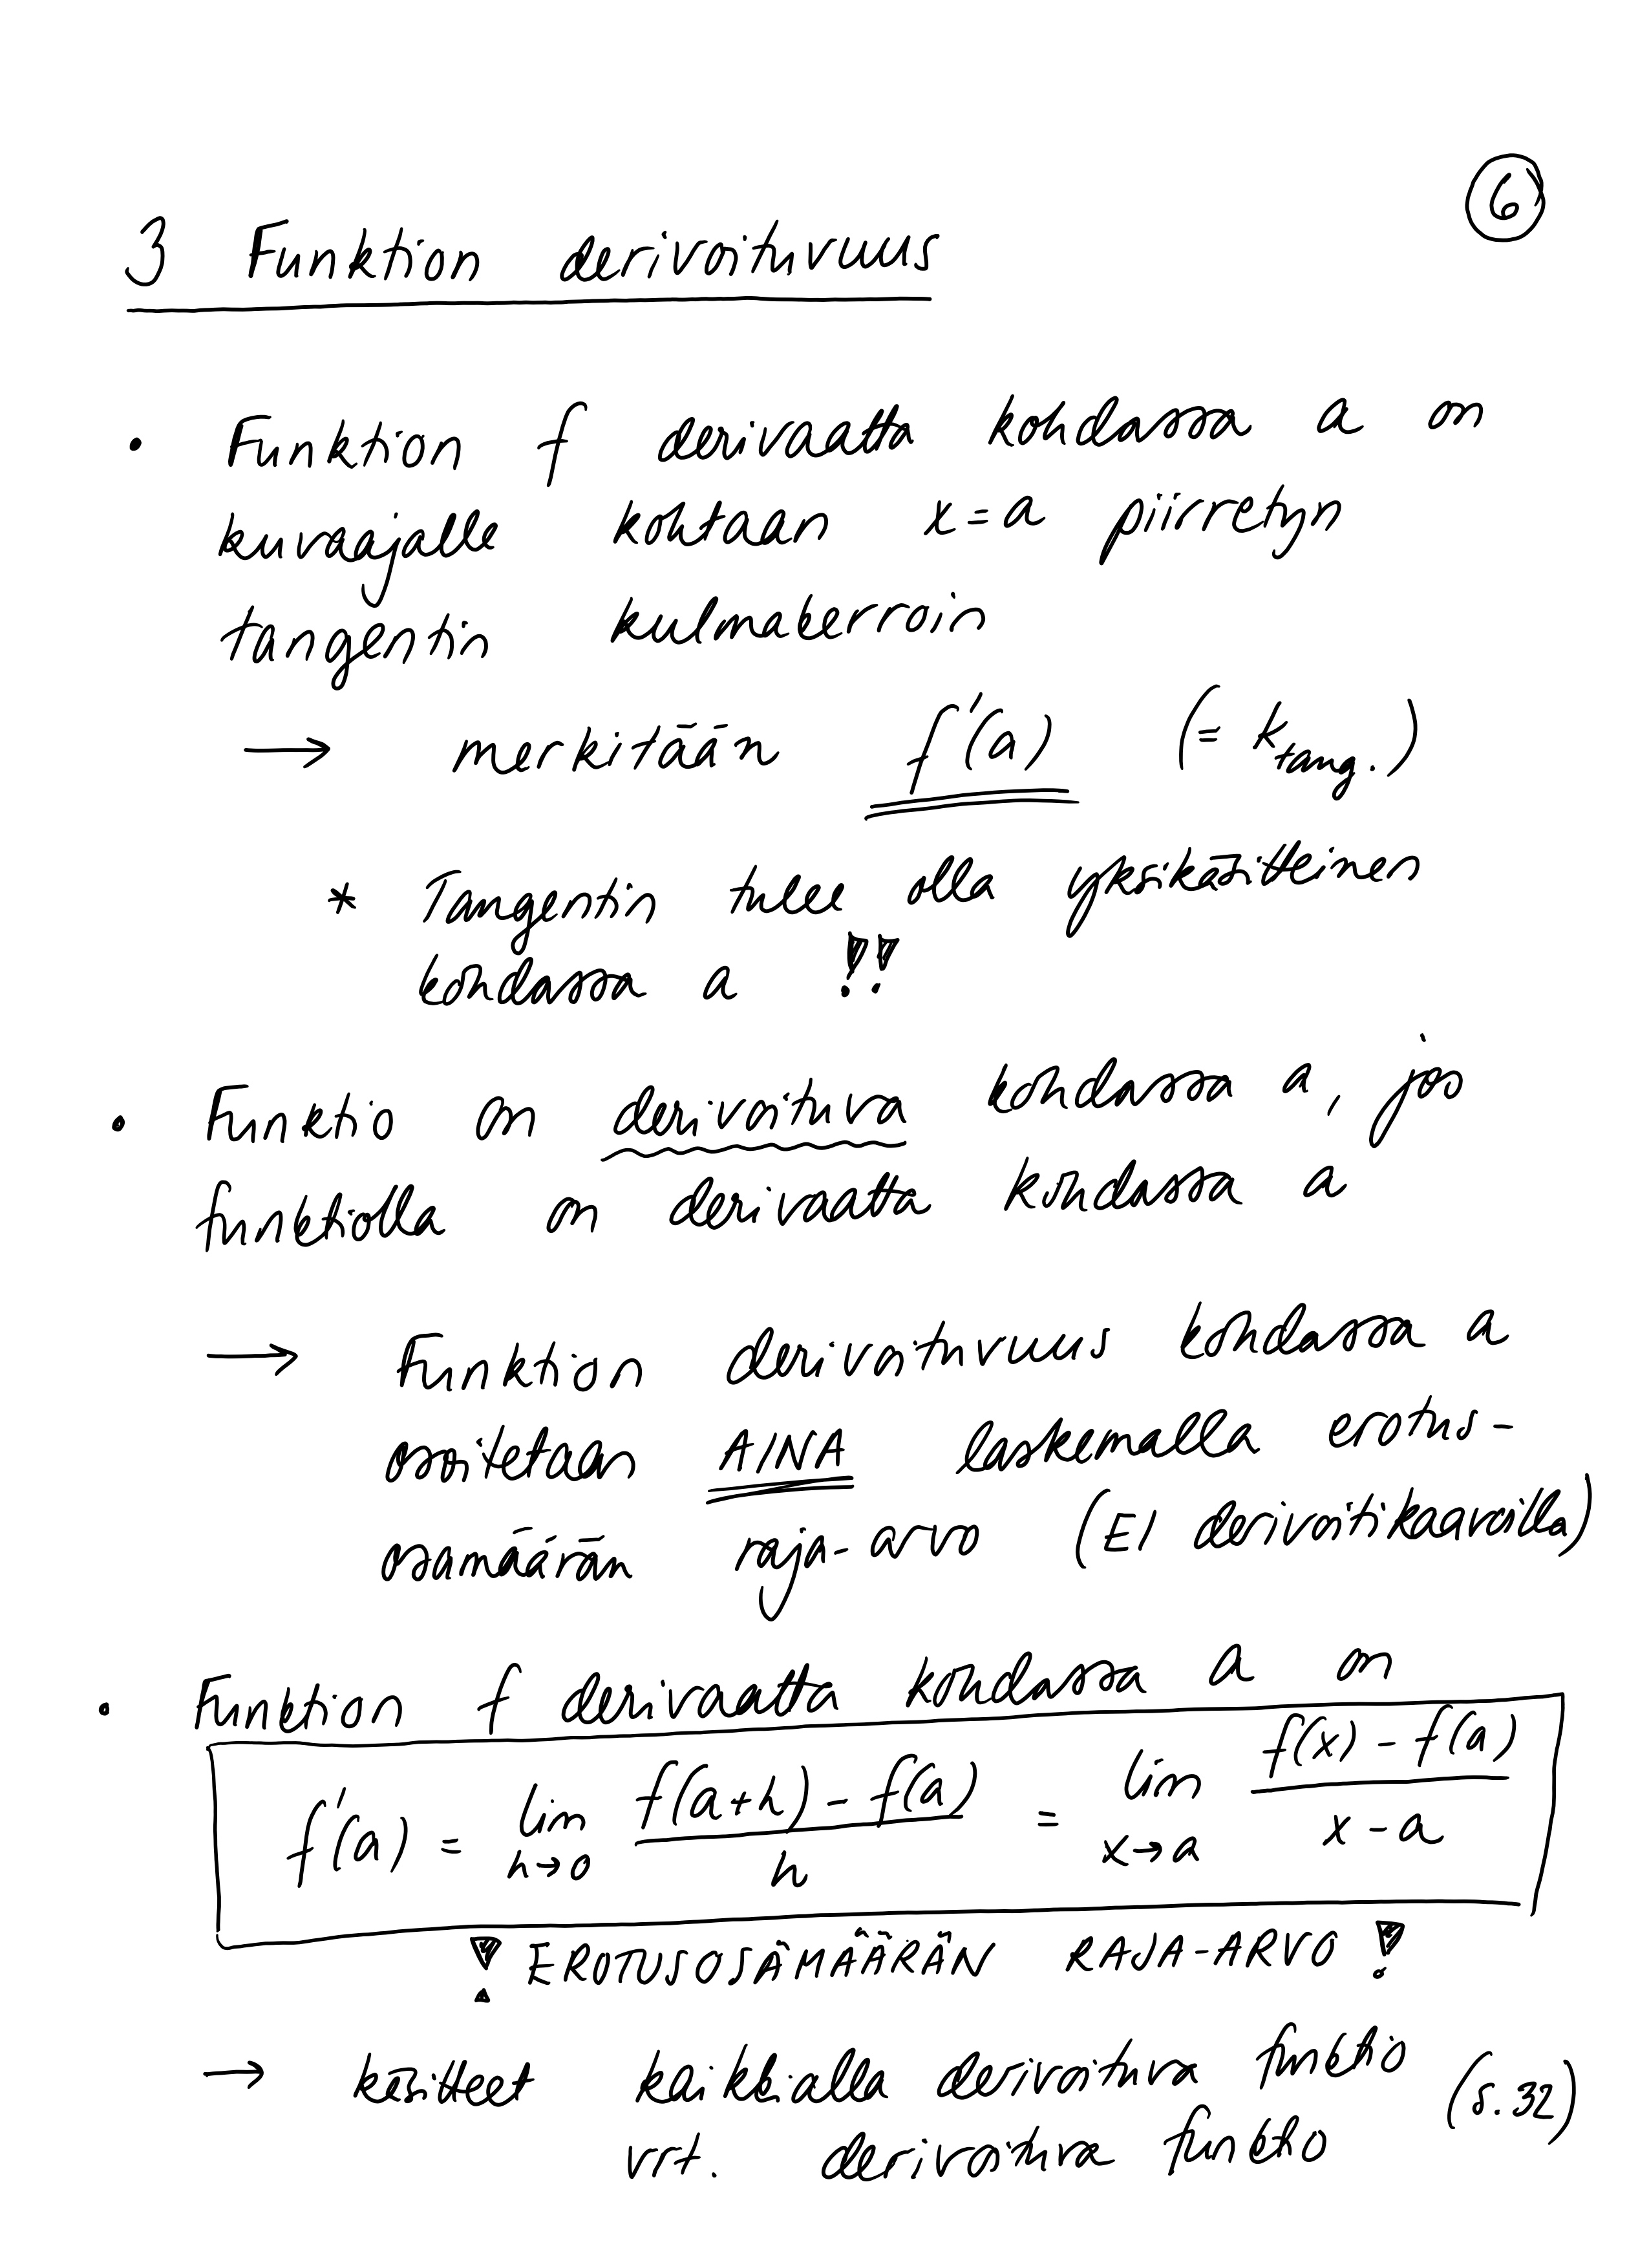 6
3 Funktion derivoituvuus
• Funktion f derivaatta kohdassa a on
kuvaajalle kohtaan x = a piirretyn
tangentin kulmakerroin
→ merkitään f'(a) (= k_tang.)
* Tangentin tulee olla yksikäsitteinen
kohdassa a !!
• Funktio on derivoituva kohdassa a, jos
funktiolla on derivaatta kohdassa a
→ Funktion derivoituvuus kohdassa a
osoitetaan AINA laskemalla erotus-
osamäärän raja-arvo (EI derivoitikaavoilla)
• Funktion f derivaatta kohdassa a on
f'(a) = lim_{h→0} (f(a+h) - f(a))/h = lim_{x→a} (f(x) - f(a))/(x - a)
! EROTUSOSÄMÄÄRÄN RAJA-ARVO !
→ käsitteet kaikkialla derivoituva funktio (s. 32)
vrt. derivoituva funktio